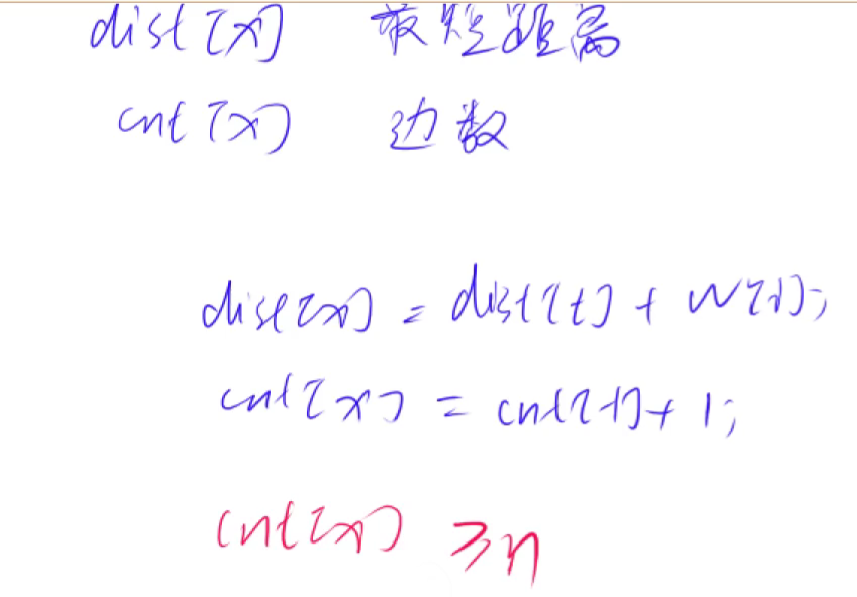 dist[x] 最短距离
cnt[x] 边数
dist[x] = dist[t] + w[i];
cnt[x] = cnt[t] + 1;
cnt[x] ≥ n